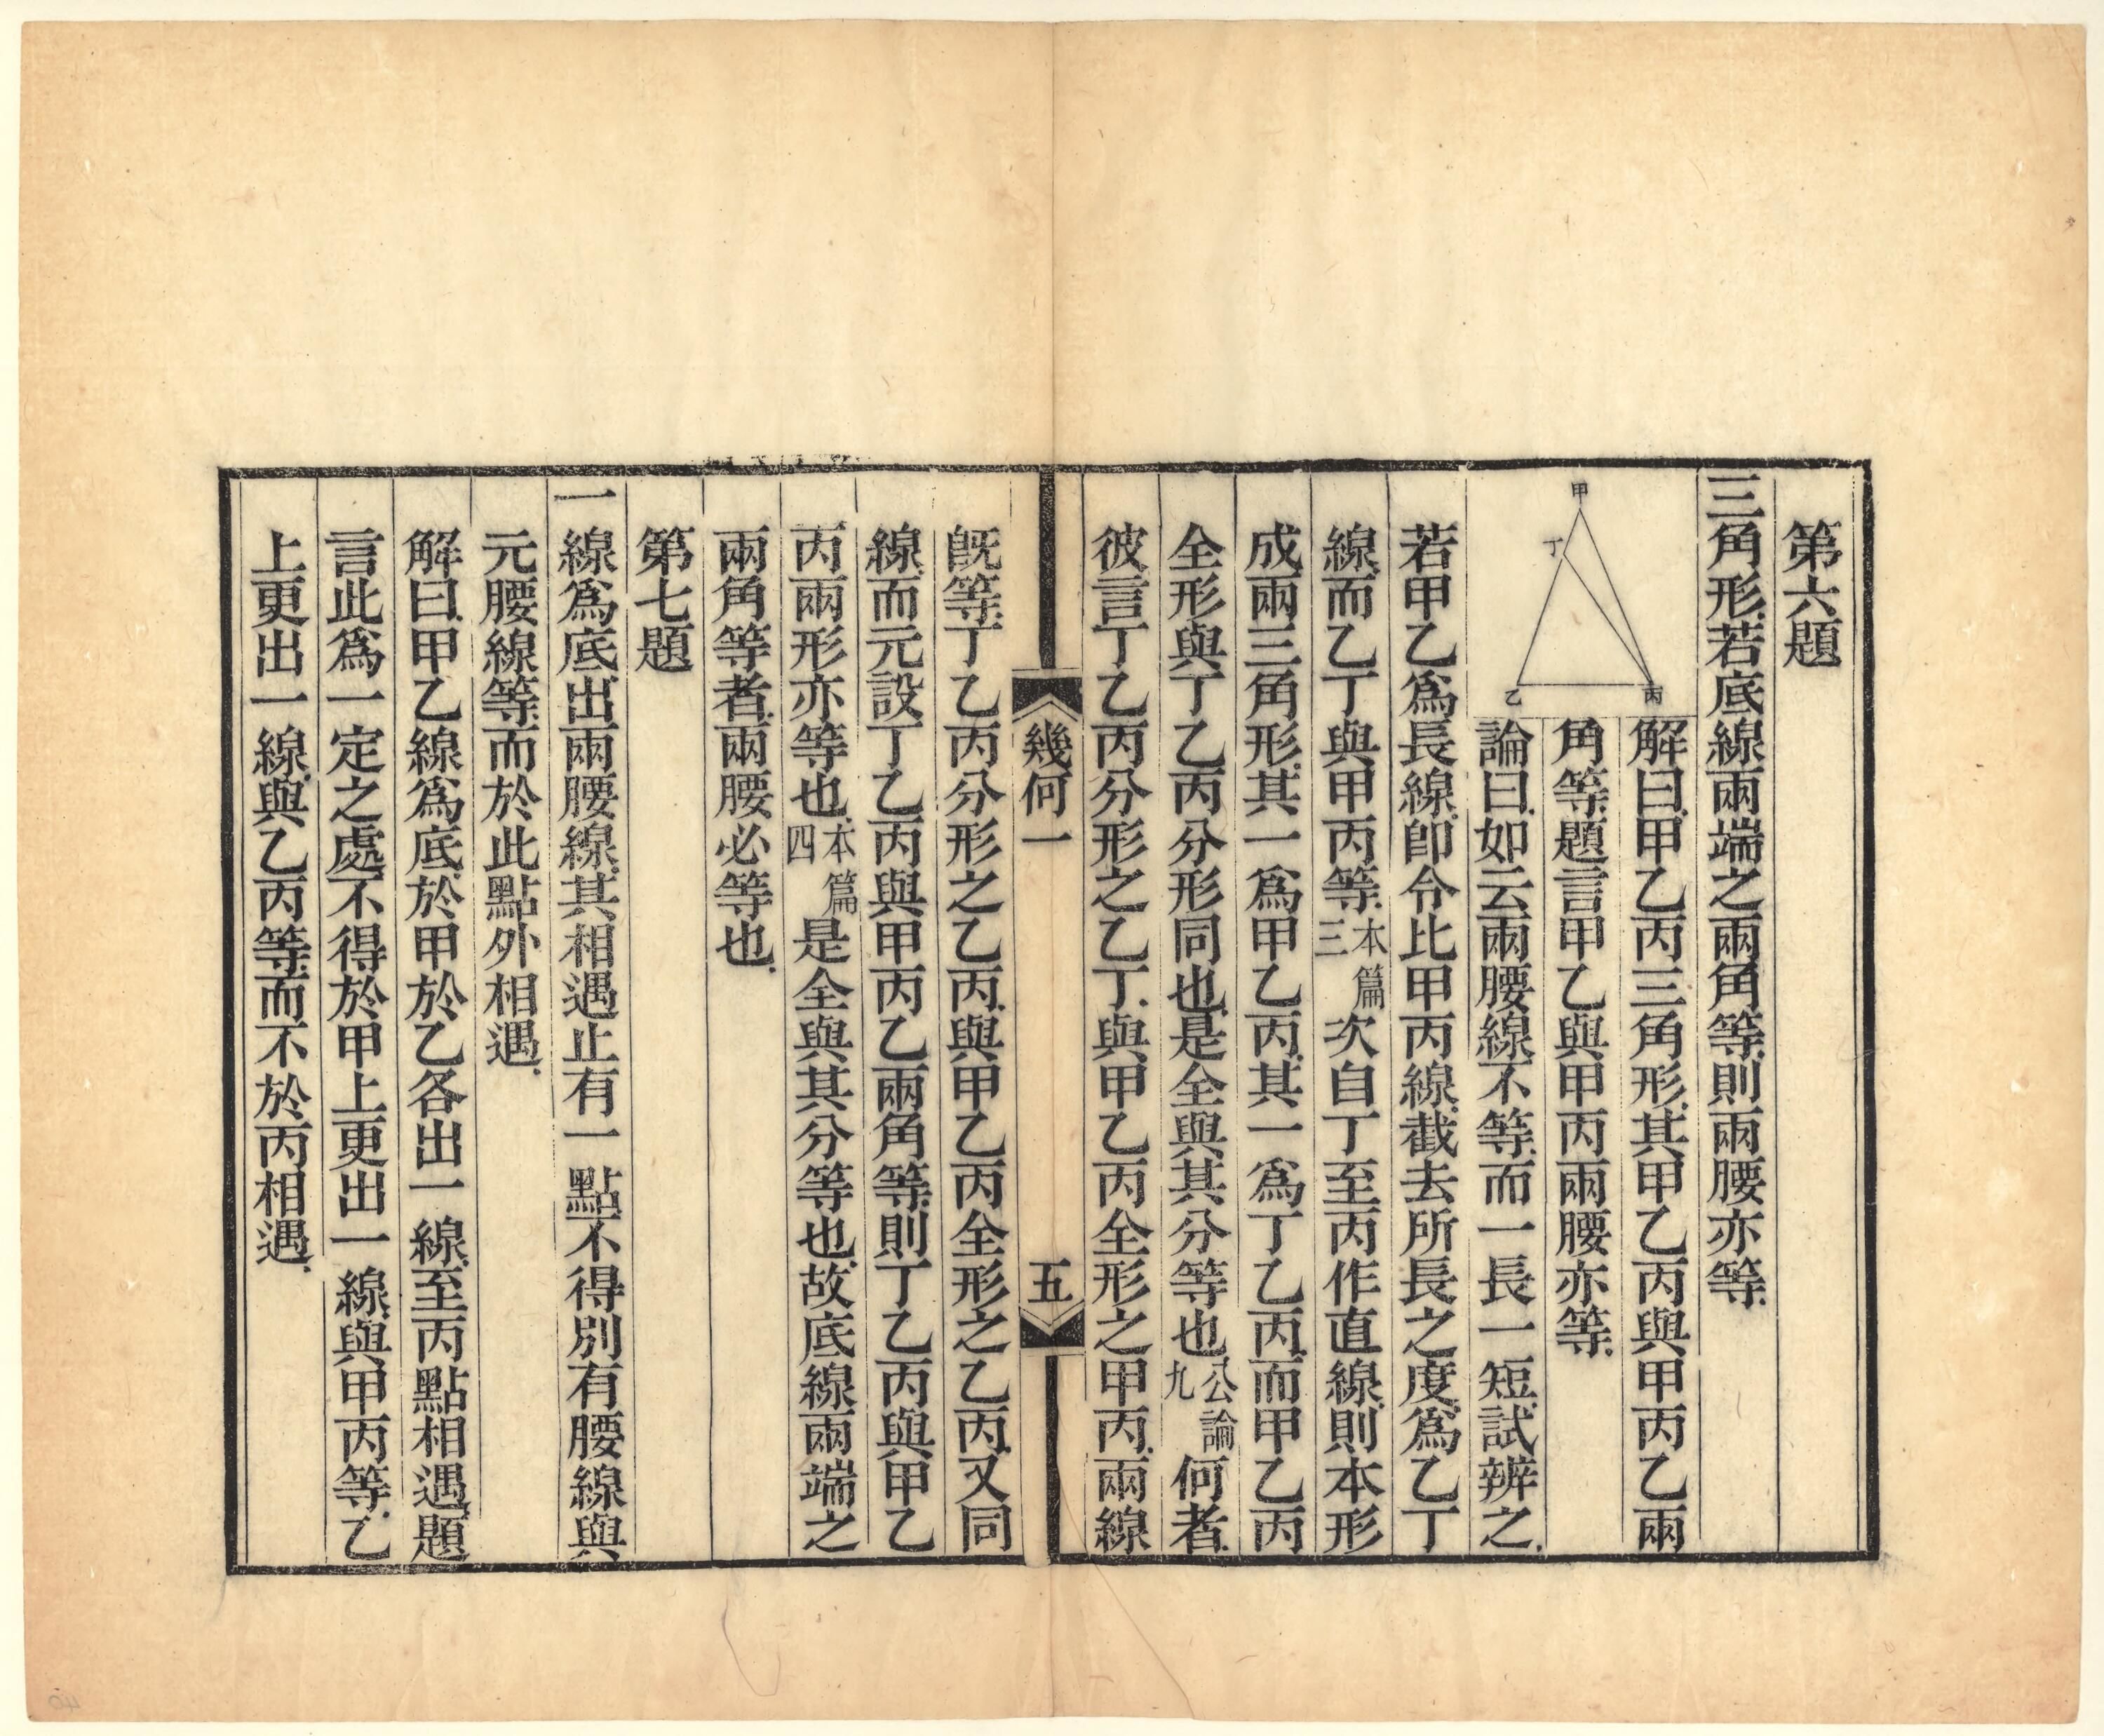 第六題
三角形若底線兩端之兩角等則兩腰亦等
甲
丁
乙
丙
解曰甲乙丙三角形其甲乙丙與甲丙乙兩
角等題言甲乙與甲丙兩腰亦等
論曰如云兩腰線不等而一長一短試辨之
若甲乙爲長線卽令比甲丙線截去所長之度爲乙丁
線而乙丁與甲丙等本篇三次自丁至丙作直線則本形
成兩三角形其一爲甲乙丙其一爲丁乙丙而甲乙丙
全形與丁乙丙分形同也是全與其分等也公論九何者
彼言丁乙丙分形之乙丁與甲乙丙全形之甲丙兩線
幾何一
五
旣等丁乙丙分形之乙丙與甲乙丙全形之乙丙又同
線而元設丁乙丙與甲丙乙兩角等則丁乙丙與甲乙
丙兩形亦等也本篇四是全與其分等也故底線兩端之
兩角等者兩腰必等也
第七題
一線爲底出兩腰線其相遇止有一點不得別有腰線與
元腰線等而於此點外相遇
解曰甲乙線爲底於甲於乙各出一線至丙點相遇題
言此爲一定之處不得於甲上更出一線與甲丙等乙
上更出一線與乙丙等而不於丙相遇
40